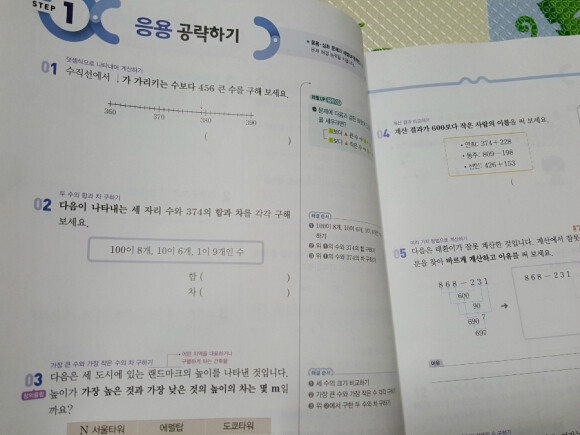 STEP 1 응용 공략하기
덧셈식으로 나타내어 계산하기
01 수직선에서 ↓가 가리키는 수보다 456 큰 수를 구해 보세요.
360 370 380 390
( )
두 수의 합과 차 구하기
02 다음이 나타내는 세 자리 수와 374의 합과 차를 각각 구해
보세요.
100이 8개, 10이 6개, 1이 9개인 수
합 (
차 ( )
가장 큰 수와 가장 작은 수의 차 구하기
어떤 지역을 대표하거나
구별하게 하는 건축물
03 다음은 세 도시에 있는 랜드마크의 높이를 나타낸 것입니다.
창의융합
높이가 가장 높은 것과 가장 낮은 것의 높이의 차는 몇 m일
까요?
N 서울타워 에펠탑 도쿄타워
해결 순서
❶ 100이 8개, 10이 6개,
하기
❷ 위 ❶의 수와 374의 합 구하기
❸ 위 ❶의 수와 374의 차 구하기
해결 순서
❶ 세 수의 크기 비교하기
❷ 가장 큰 수와 가장 작은 수
❸ 위 ❷에서 구한 두 수의 차 구하기
계산 결과 비교하기
04 계산 결과가 600보다 작은 사람의 이름을 써 보세요.
• 연희: 374+228
• 동주: 809-198
• 선민: 426+153
(
여러 가지 방법으로 계산하기
05 다음은 태환이가 잘못 계산한 것입니다. 계산에서 잘못
분을 찾아 바르게 계산하고 이유를 써 보세요.
868-231 → 868-231
600
90
690
697
이유